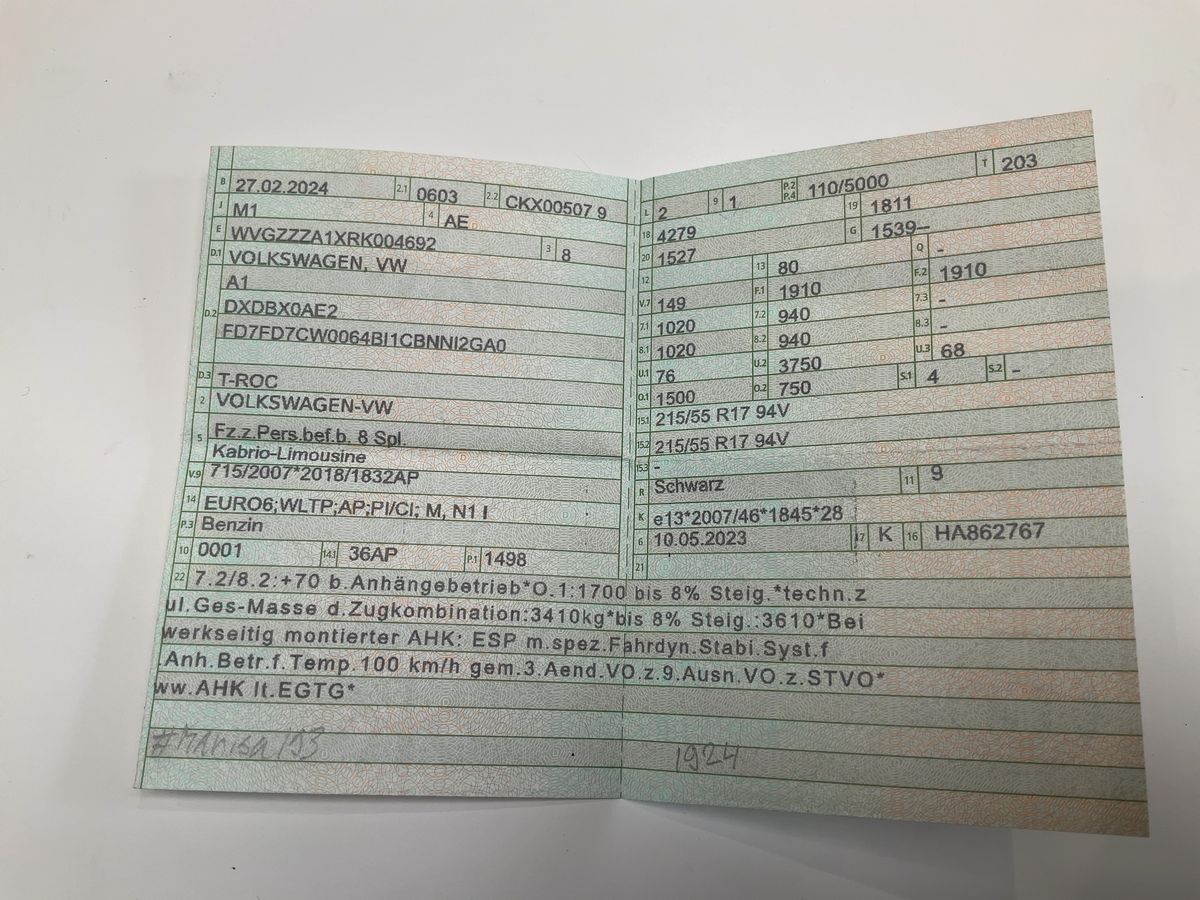 B 27.02.2024 2.1 0603 2.2 CKX00507 9
J M1 4 AE
E WVGZZZA1XRK004692 3 8
D.1 VOLKSWAGEN, VW
A1
D.2 DXDBX0AE2
FD7FD7CW0064BI1CBNNI2GA0
D.3 T-ROC
2 VOLKSWAGEN-VW
5 Fz.z.Pers.bef.b. 8 Spl.
Kabrio-Limousine
V.9 715/2007*2018/1832AP
14 EURO6;WLTP;AP;PI/CI; M, N1 I
P.3 Benzin
10 0001 14.1 36AP P.1 1498
L 2 9 1 P.2 P.4 110/5000 T 203
18 4279 19 1811
20 1527 G 1539–
12 13 80 Q -
V.7 149 F.1 1910 F.2 1910
7.1 1020 7.2 940 7.3 -
8.1 1020 8.2 940 8.3 -
U.1 76 U.2 3750 U.3 68
O.1 1500 O.2 750 S.1 4 S.2 –
15.1 215/55 R17 94V
15.2 215/55 R17 94V
15.3 -
R Schwarz 11 9
K e13*2007/46*1845*28
6 10.05.2023 17 K 16 HA862767
21
22 7.2/8.2:+70 b.Anhängebetrieb*O.1:1700 bis 8% Steig.*techn.z
ul.Ges-Masse d.Zugkombination:3410kg*bis 8% Steig.:3610*Bei
werkseitig montierter AHK: ESP m.spez.Fahrdyn.Stabi.Syst.f
.Anh.Betr.f.Temp.100 km/h gem.3.Aend.VO.z.9.Ausn.VO.z.STVO*
ww.AHK lt.EGTG*
#Marisa 193 1924